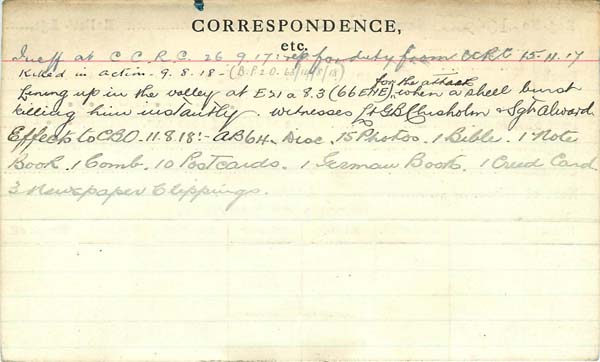 CORRESPONDENCE,
etc.
Ineff at C C R C. 26.9.17: rep for duty from CCRC 15.11.17
Killed in action - 9.8.18 - (B.P.2.O. 63 14/8/18)
for the attack
Lining up in the valley at E21 a 8.3 (66ENE), when a shell burst
killing him instantly. Witnesses Lt G.B. Chisholm & Sgt Alward.
Effects to CBO. 11.8.18:- AB64. Disc. 15 Photos. 1 Bible. 1 Note
Book. 1 Comb. 10 Postcards. 1 German Book. 1 Creed Card
3 Newspaper Clippings.